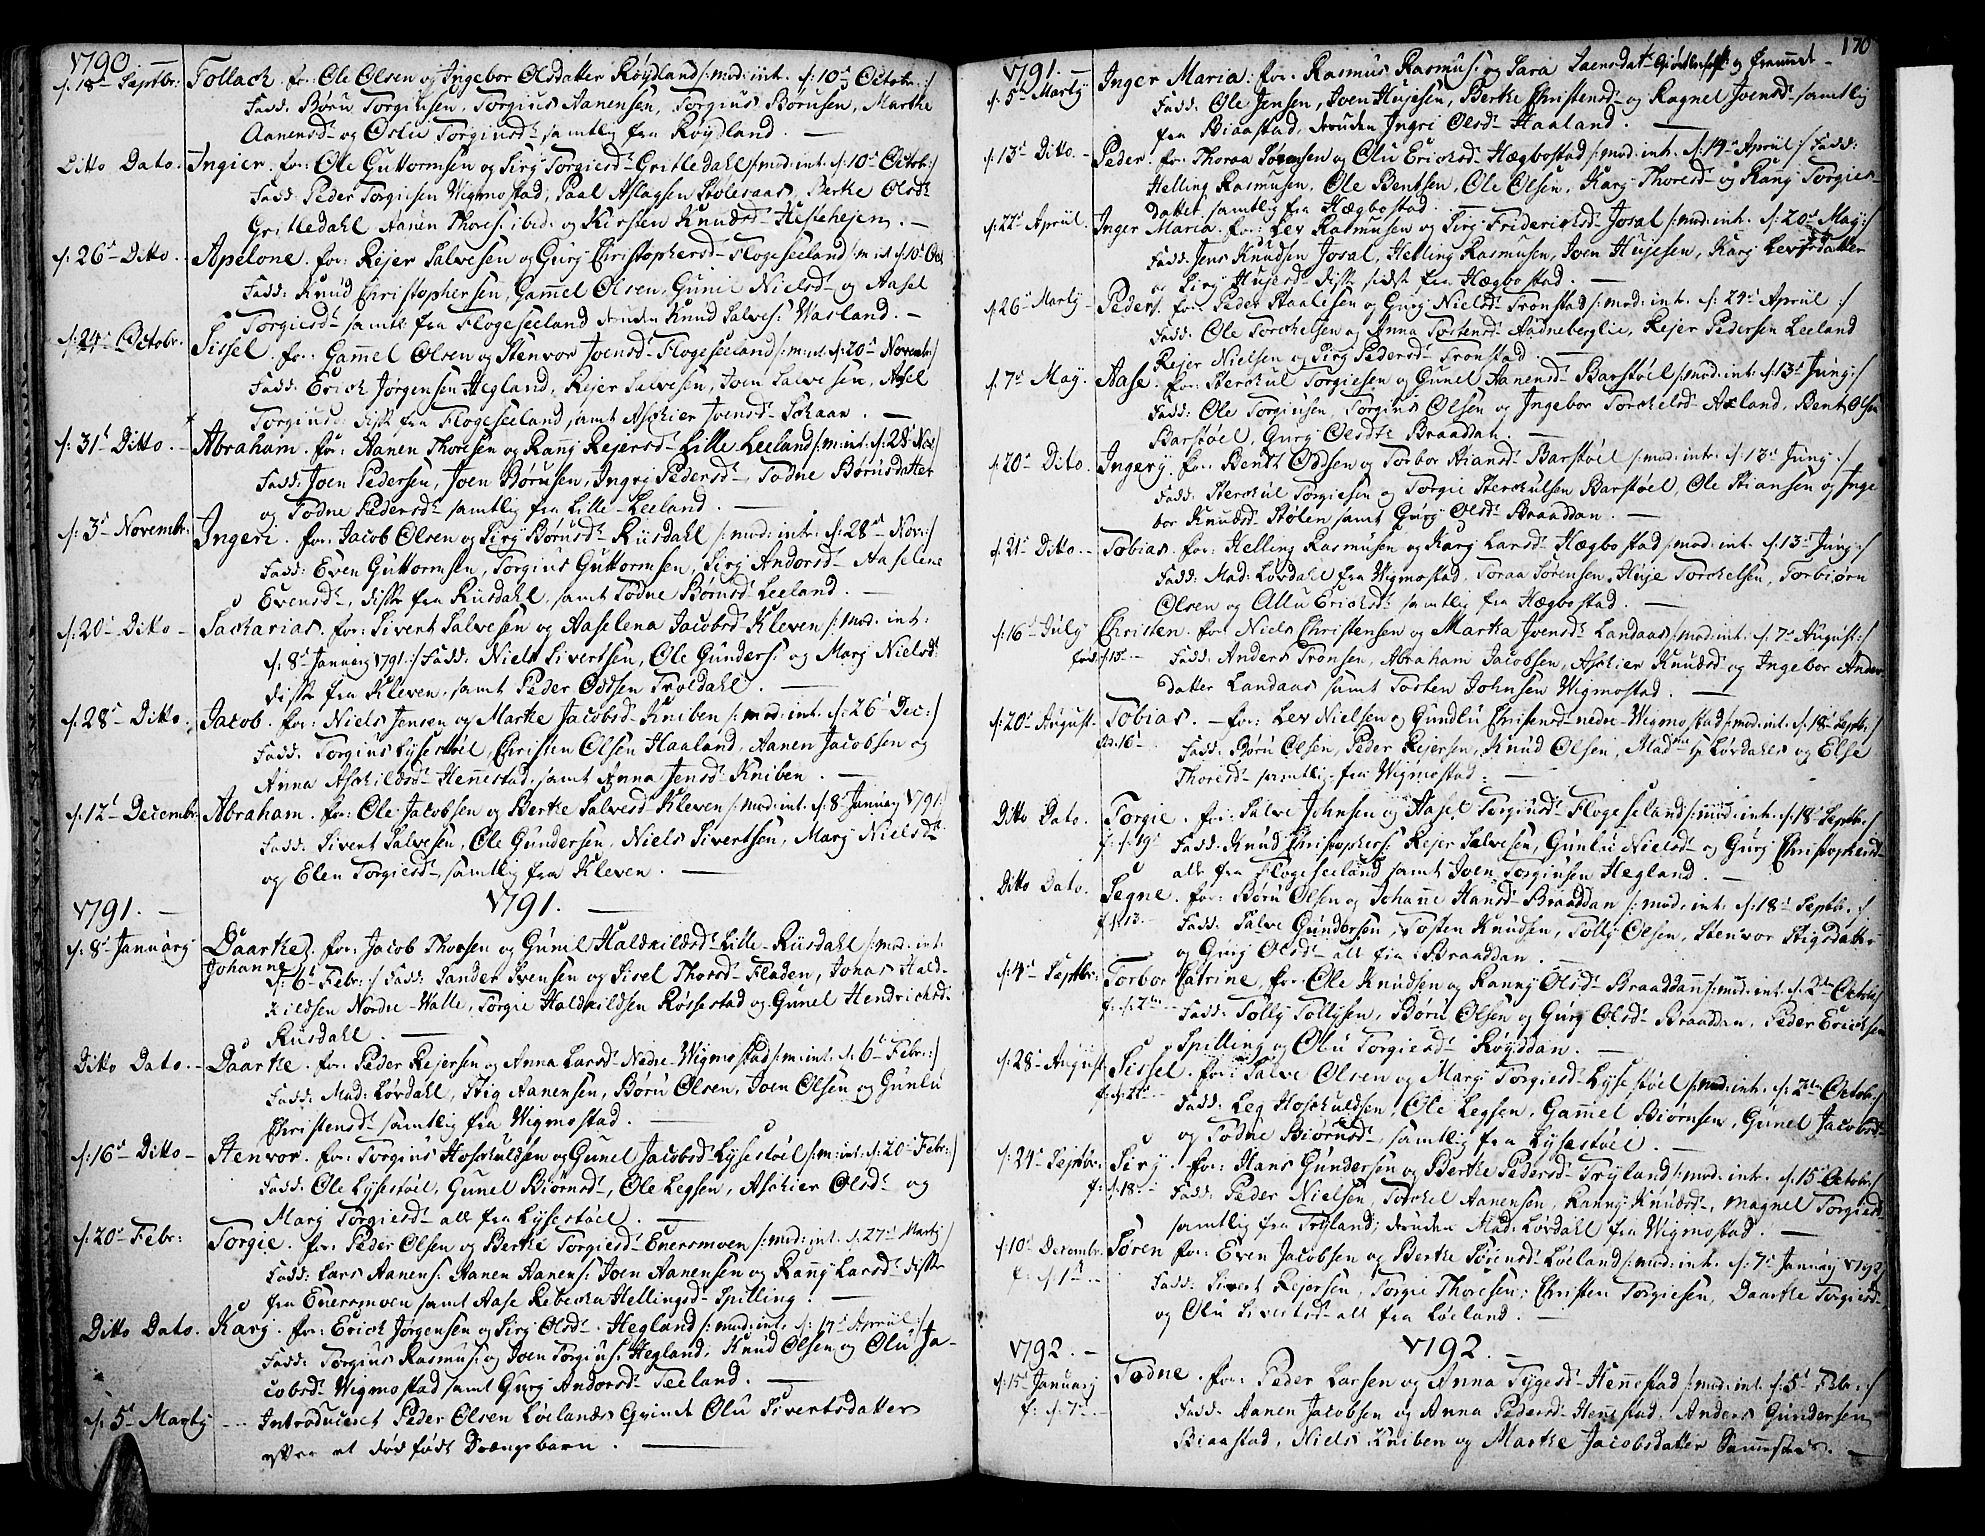 1790
d: 18d Septbr: Tollach. for: Ole Olsen og Ingebor Olsdatter Röydland /: mod: int. d: 10d Octobr :/
Fadd: Børu Torgiusen, Torgius Aanensen, Torgius Børusen, Marthe
Aanensd- og Oslu Torgiusdr samtlig fra Röydland. —
Ditto Dato. Ingier. for: Ole Guttormsen og Sirj Torgiesd- Gritledahl /: mod: int. d: 10d Octob: /
Fadd: Peder Torgiesen Wigmostad, Paal Aslagsen Stolesaas, Berte Olsdr
Gritledahl Aanen Thores: ibid: og Kirsten Knudsdr Hestehejen. —
d: 26d Ditto. Apelone. for: Rejer Salvesen og Gurj Christophersd- Flogeseeland /: m: int d: 10d Oct
Fadd: Knud Christophersen, Gam̄el Olsen, Gunel Nielsdr og Aasel
Torgiesdr samtl: fra Flogeseeland deruden Knud Salves: Wasland. —
d: 24d Octobr. Sissel. for: Gam̄el Olsen og Stenvor Joensd- Flogeseeland /: m: int: d: 20d Novembr: /
Fadd: Erich Jørgensen Hegland, Rejer Salvesen, Joen Salvesen, Aasel
Torgiusd: disse fra Flogeseeland, samt Aschier Joensdr Schaar. —
d: 31d Ditto. Abraham. for: Aanen Thoresen og Ran̄j Rejersdr Lille Leeland /: m: int: d: 28d Nov: /
Fadd: Joen Pedersen, Joen Børusen, Ingrj Pedersdr Todne Børusdatter
og Todne Pedersdr samtlig fra Lille-Leeland. —
d: 3d Novembr: Ingeri. for: Jacob Olsen og Sirj Børusdr Riisdahl /: mod: int: d: 28d Nov: /
Fadd: Even Guttormsen, Torgius Guttormsen, Sirj Andorsd- Aaselene
Evensd-, disse fra Riisdahl, samt Todne Børusdr Leeland. —
d: 20d Ditto - Sacharias. for: Sivert Salvesen og Aaselena Jacobsd- Kleven /: mod: int:
d: 8d Januarj 1791 :/ Fadd: Niels Sivertsen, Ole Gunders: og Marj Nielsdr
disse fra Kleven, samt Peder Oddsen Troldahl. —
d: 28d Ditto. Jacob. for: Niels Jensen og Marte Jacobsd- Kniben /: mod: int. d: 26d Dec: /
Fadd: Torgius Lysestøel, Christen Olsen Haaland, Aanen Jacobsen og
Anna Aschildsdr Hen̄estad, samt Anna Jensdr Kniben. —
d: 12d Decembr: Abraham. for: Ole Jacobsen og Berte Salvesd- Kleven /: mod: int. d: 8d Januarj 1791: /
Fadd: Sivert Salvesen, Ole Gundersen, Niels Sivertsen, Marj Nielsdr
og Elen Torgiesdr samtlig fra Kleven. —
1791. — 1791. —
d: 8d Januarj Daarthe Johanne. for: Jacob Thorsen og Gunil Haldvildsd- Lille-Riisdahl /: mod: int:
d: 6d Febr: / Fadd: Sander Svensen og Sisel Thorsdr Fladen, Jonas Hald-
vildsen Nordre-Walle, Torgie Haldvildsen Rossestad og Gunel Hendrichsd-
Riisdahl. —
Ditto Dato. Daarthe. for: Peder Rejersen og Anna Larsd- Nedre-Wigmostad /: m: int: d: 6d Febr: /
Fadd: Mad: Løvdahl, Stig Aanensen, Børu Olsen, Joen Olsen og Gunlu
Christensdr samtlig fra Wigmostad. —
d: 16d Ditto - Stenvor. for: Torgius Hoschuldsen og Gunel Jacobsdr Lysestøel /: m: int: d: 20d Febr: /
Fadd: Ole Lysestøel, Gunel Biørnsd-, Ole Legsen, Aschier Olsdr og
Marj Torgiesdr alt fra Lysestøel. —
d: 20d Febr: Torgie. for: Peder Olsen og Berte Torgiesd- Enersmoen /: mod: int. d: 27d Martj /
Fadd: Lars Aanens: Aanen Aanens: Joen Aanensen og Ran̄j Larsdr disse
fra Enersmoen samt Aase Rebecka Hellingsdr Spilling. —
Ditto Dato. Karj. for: Erich Jørgensen og Sirj Olsdr Hegland /: mod: int. d: 14d Apriil: /
Fadd: Torgius Rasmus: og Joen Torgius: Hegland, Knud Olsen og Olu Ja-
cobsdr Wigmostad samt Gurj Andorsdr Teeland. —
d: 5d Martj --- Introduceret Peder Olsen Løelands Qvinde Olu Sivertsdatter
efter et død født Drængebarn. —
170
1791
d: 5d Martj Inger Maria. for: Rasmus Rasmus: og Sara Saensdatr
Fadd: Ole Jensen, Joen Hujesen, Berte Christensd- og Ragnel Joensdr samtlig
fra Biaastad, deruden Ingri Olsdr Haaland. —
d: 13d Ditto. Peder. for: Thoraa Sørensen og Olu Ericksd- Hægbostad /: mod: int. d: 14d Apriil: / Fadd:
Helling Rasmusen, Ole Bentsen, Ole Olsen, Karj Thoresdr og Ran̄j Torgies-
datter samtlig fra Hægbostad. —
d: 22d Apriil. Inger Maria. for: Lev Rasmusen og Sirj Friderichsdr Josal /: mod: int. d: 20d Maj: /
Fadd: Jens Knudsen Josal, Helling Rasmusen, Joen Hujesen, Karj Levsdatter
og Sirj Hujesdr disse sidst fra Hægbostad. —
d: 26d Martj Peder. for: Peder Staalesen og Gurj Nielsdr Tronstad /: mod: int. d: 24d Apriil :/
Fadd: Ole Torchelsen og Anna Tostensdr Aadneberglie, Rejer Pedersen Leeland
Rejer Nielsen og Sirj Pedersdr Tronstad. —
d: 7d Maj. Aase. for: Sterchul Torgiesen og Gunel Aanensdr Barstøel /: mod: int. d: 13d Junj: /
Fadd: Ole Torgiusen, Torgius Olsen og Ingebor Torchelsd- Axland, Bent Olsen
Barstøel, Gurj Olsdr Braaddan. —
d: 20d Ditto. Ingerj. for: Bent Oddsen og Torbor Stiansdr Barstøel /: mod: int: d: 13d Junj :/
Fadd: Sterchul Torgiesen og Torgie Sterchulsen Barstøel, Ole Stiansen og Inge
bor Knudsd- Stølen samt Gurj Olsdr Braaddan. —
d: 21d Ditto. Tobias. for: Helling Rasmusen og Karj Larsdr Hægbostad /: mod: int. d: 13d Junj: /
Fadd: Mad: Løvdahl fra Wigmostad, Toraa Sørensen, Huje Torchelsen, Torbiørn
Olsen og Allu Ericksdr samtlig fra Hægbostad. —
d: 16d Julj Christen. for: Niels Christensen og Martha Joensdr Landaas /: mod: int. d: 7d August: /
fød: d: 15. Fadd: Anders Tronsen, Abraham Jacobsen, Aschier Knudsdr og Ingebor Anders
datter Landaas samt Tosten Johnsen Wigmostad. —
d: 20d August. Tobias. for: Lev Nielsen og Gundlu Christensd- nedre-Wigmostad /: mod: int. d: 18d Septbr: /
fd. 16d Fadd: Børu Olsen, Peder Rejersen, Knud Olsen, Madme Løvdahls og Else
Thoresdr samtlig fra Wigmostad. —
Ditto Dato. Torgie. for: Salve Johnsen og Aasel Torgiusd- Flogeseeland /: mod: int. d: 18d Septbr: /
f: d: 19d Fadd: Knud Christophers: Rejer Salvesen, Gunlu Nielsdr og Gurj Christophersd-
alt fra Flogeseeland samt Joen Torgiusen Hegland. —
Ditto Dato. Segne. for: Børu Olsen og Johan̄e Hansdr Braaddan /: mod: int. d: 18d Septb: /
f: d: 13. Fadd: Salve Gundersen, Tosten Knudsen, Tolly Olsen, Stenvor Stigsdatter
og Gurj Olsdr alt fra Braaddan. —
d: 4d Septbr: Torbor Catrine, for: Ole Knudsen og Ran̄y Olsdr Braaddan /: mod: int. d: 2den Octobr /
f: d: 2den Fadd: Tolly Tollysen, Børu Olsen og Gurj Olsdr Braaddan, Peder Ericksen
Spilling og Olu Torgiesdr Röyddan. —
d: 28d August Sissel. for: Salve Olsen og Marj Torgiesd- Lysestøel /: mod: int. d: 2den Octob: /
f: d: 21d Fadd: Leg Hoschuldsen, Ole Legsen, Gam̄el Biørnsen, Gunel Jacobsd-
og Todne Biørnsd-, samtlig fra Lysestøel. —
d: 24d Septbr: Sirj. for: Hans Gundersen og Berthe Pedersd- Tryland /: mod: int. d: 15d Octobr: /
f: d: 18. Fadd: Peder Nielsen, Torchel Aanensen, Ranny Knudsdr, Magnel Torgiesd-
samtlig fra Tryland; deruden Mad: Løvdahl fra Wigmostad. —
d: 10d Decembr. Søren for: Even Jacobsen og Berthe Sørensdr Løeland /: mod: int. d: 7d Januarj 1792 /
f: d: 1d Fadd: Sivert Rejersen, Torgie Thoresen, Christen Torgiesen, Daarthe Torgiesd-
og Olu Sivertsdr alt fra Løeland. —
1792. — 1792. —
d: 15d Januarj Todne. for: Peder Larsen og Anna Tygesdr Hen̄estad /: mod: int. d: 5d Febr: /
f: d: 7d Fadd: Aanen Jacobsen og Anna Pedersdr Hen̄estad, Anders Gundersen
Biaastad, Niels Kniben og Marthe Jacobsdatter Sam̄esteds. —